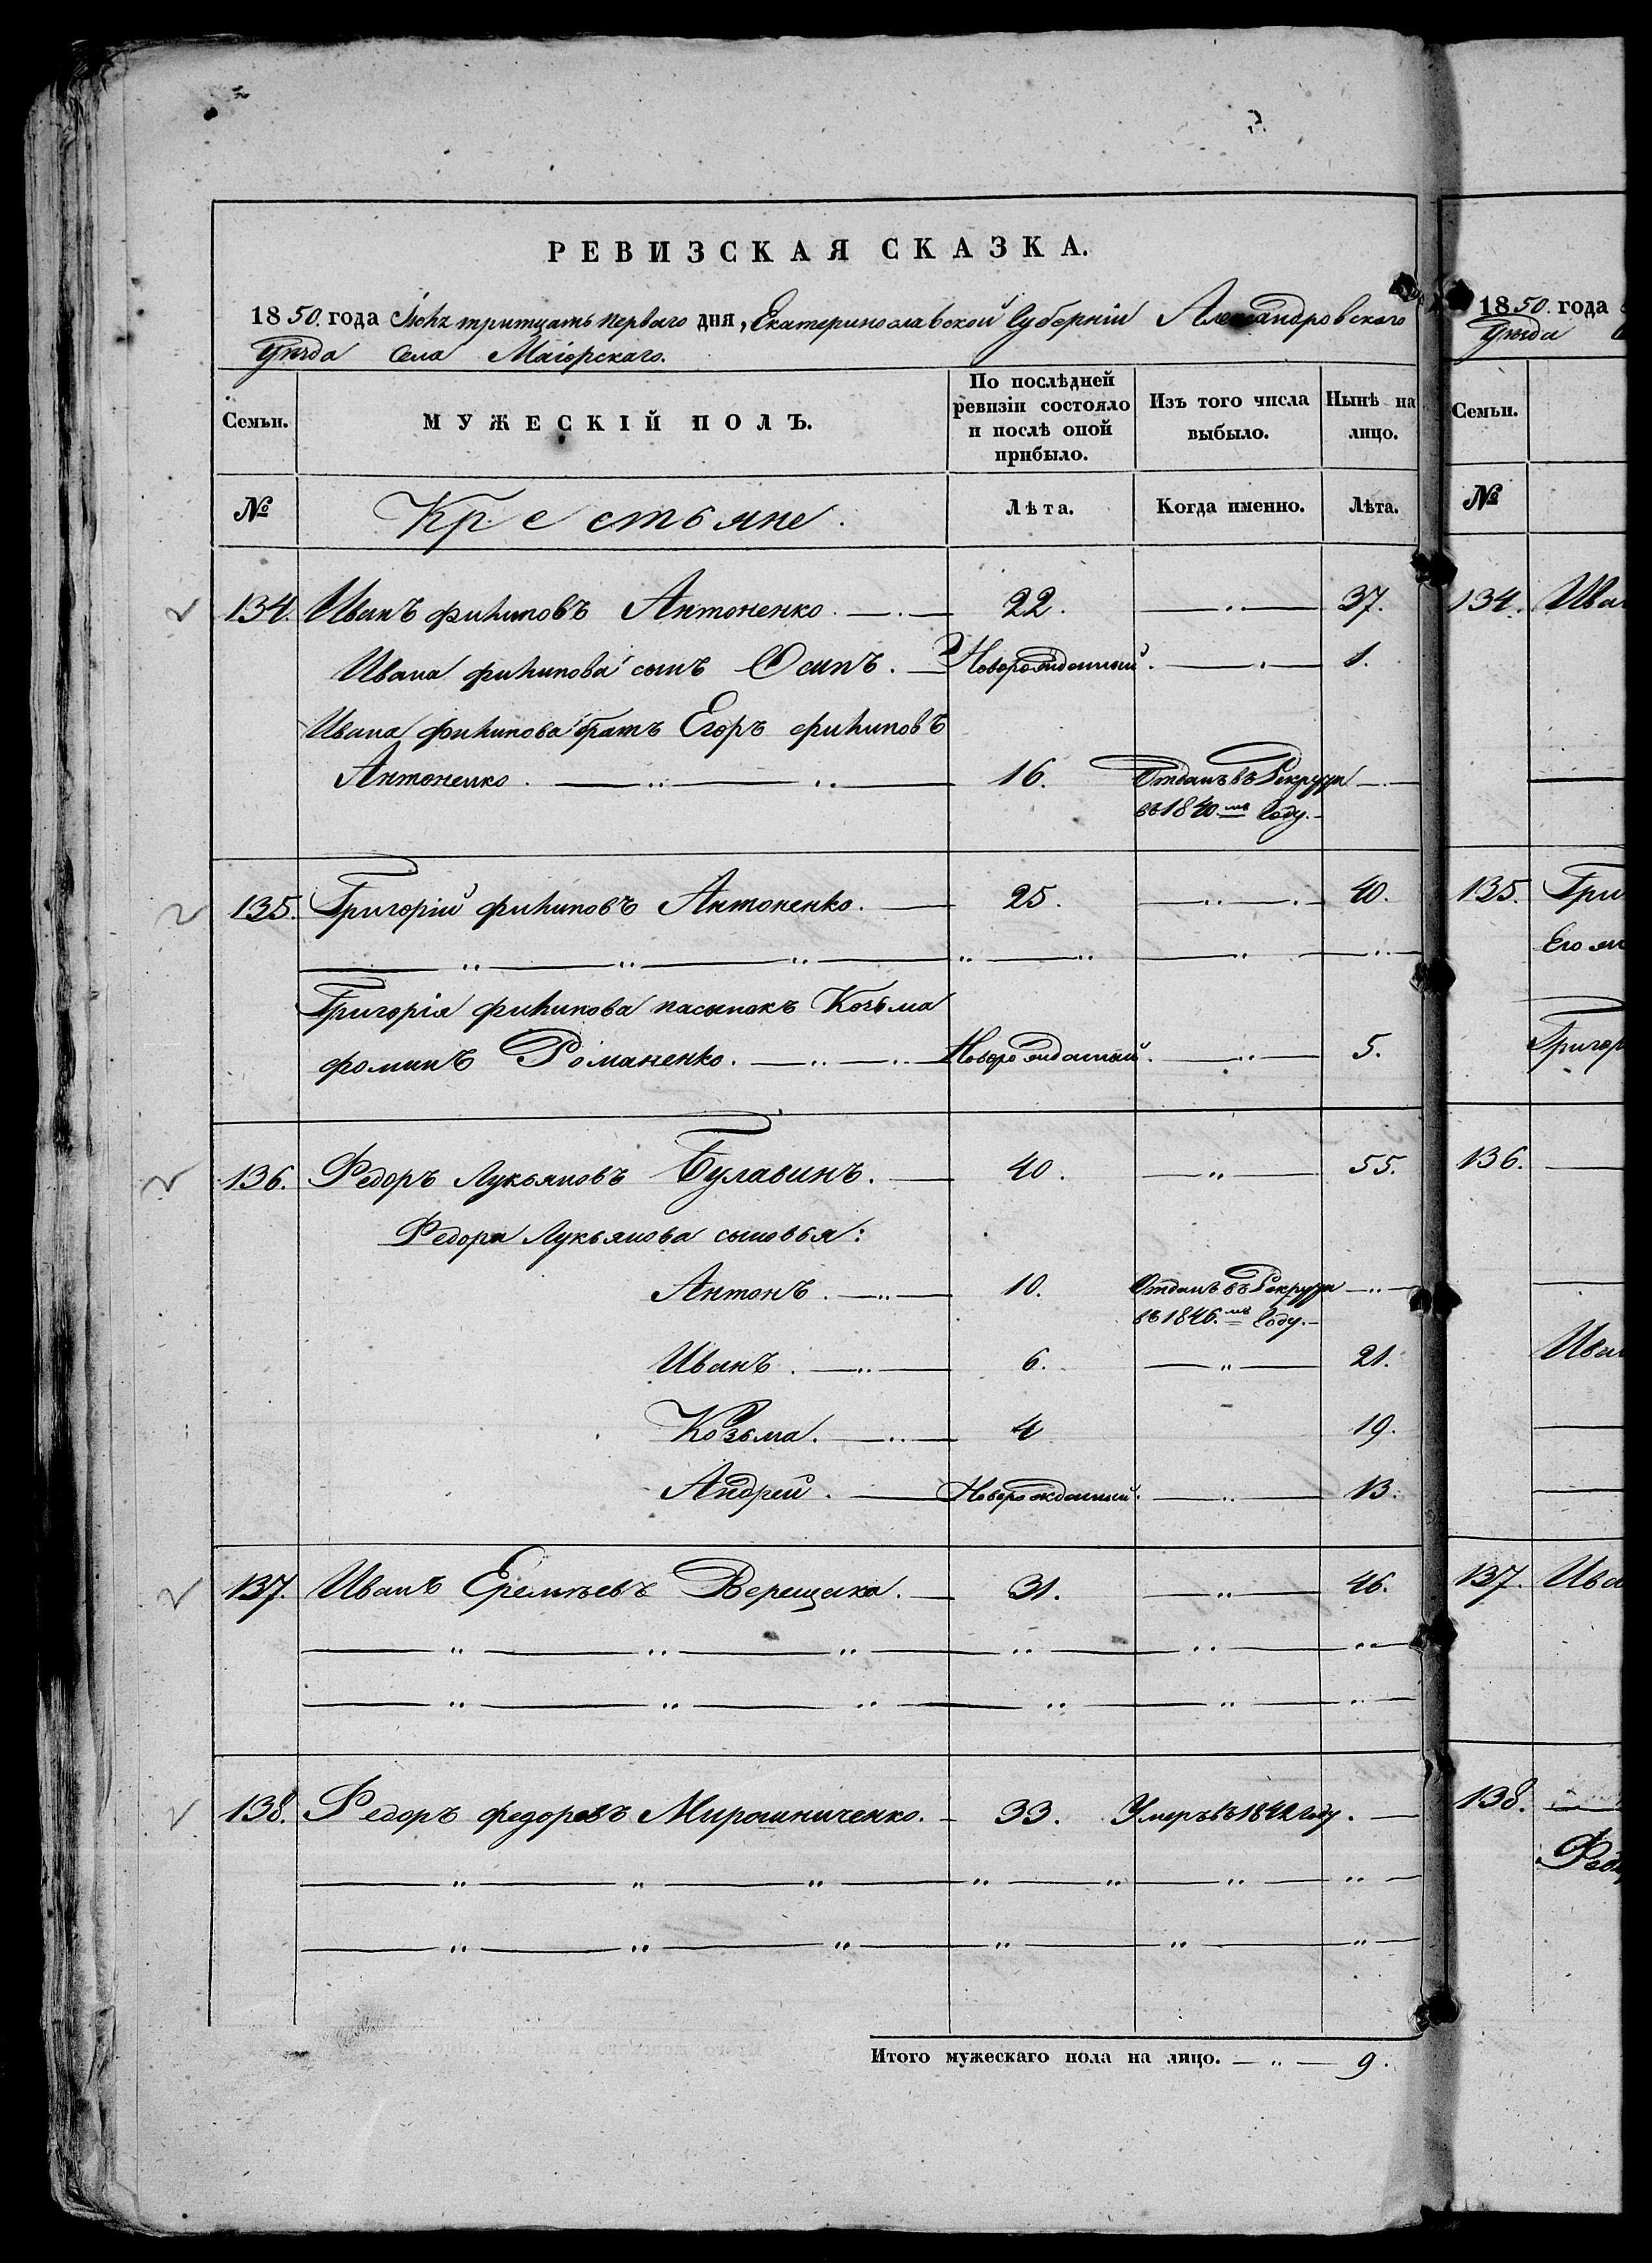 РЕВИЗСКАЯ СКАЗКА.
1850. года Іюля тритцать перваго дня, Екатеринославской Губерніи Александровскаго
Уѣзда Села Маіорскаго.
Семьи.
МУЖЕСКІЙ ПОЛЪ.
По послѣдней ревизіи состояло и послѣ оной прибыло.
Изъ того числа выбыло.
Нынѣ на лицо.
№
Крестьяне.
Лѣта.
Когда именно.
Лѣта.
134. Иванъ филиповъ Антоненко. 22. 37.
Ивана филипова сынъ Осипъ. Новорожденный. 1.
Ивана филипова братъ Егоръ филиповъ
Антоненко. 16. Отданъ въ Рекруты
въ 1840.мъ Году.
135. Григорій филиповъ Антоненко. 25. 40.
Григорія филипова пасынокъ Козьма
фоминъ Романенко. Новорожденный. 5.
136. Федоръ Лукьяновъ Булавинъ. 40. 55.
Федора Лукьянова сыновья:
Антонъ. 10. Отданъ въ Рекруты
въ 1846.мъ Году.
Иванъ. 6. 21.
Козьма. 4 19.
Андрей. Новорожденный. 13.
137. Иванъ Еремѣевъ Верещака. 31. 46.
138. Федоръ федоровъ Мирошниченко. 33. Умеръ въ 1842 году.
Итого мужескаго пола на лицо. 9.
1850. года
Уѣзда
Семьи.
№
134. Ива
135. Гри
Его
Григор
136.
Ива
137. Ива
138.
Фед